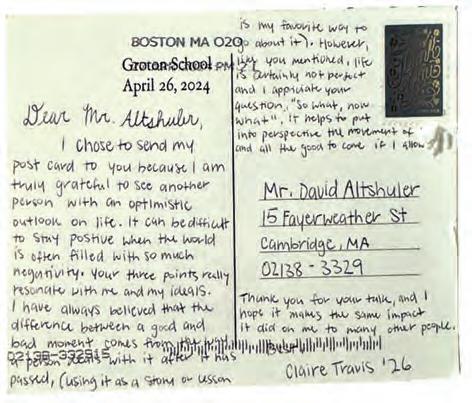 BOSTON MA 020
Groton School PM
April 26, 2024
Dear Mr. Altshuler,
I chose to send my
post card to you because I am
truly grateful to see another
person with an optimistic
outlook on life. It can be difficult
to stay postive when the world
is often filled with so much
negativity. Your three points really
resonate with me and my ideals.
I have always believed that the
difference between a good and
bad moment comes from the
a person deals with it after it has
passed, (using it as a story or lesson
is my favorite way to
go about it). However,
like you mentioned, life
is certainly not perfect
and I appriciate your
question, "So what, now
what". It helps to put
into perspective the movement of
and all the good to come if I allow
Mr. David Altshuler
15 Fayerweather St
Cambridge, MA
02138-3329
Thank you for your talk, and I
hope it makes the same impact
it did on me to many other people.
Claire Travis '26